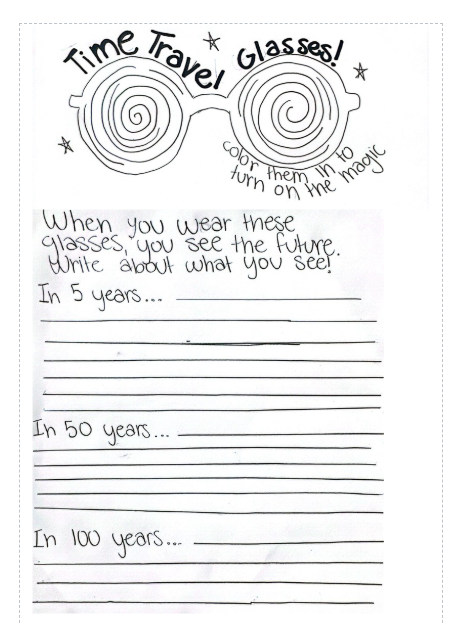 Time Travel Glasses!
color them in to
turn on the magic
When you wear these
glasses, you see the future.
Write about what you see!
In 5 years...
In 50 years...
In 100 years...